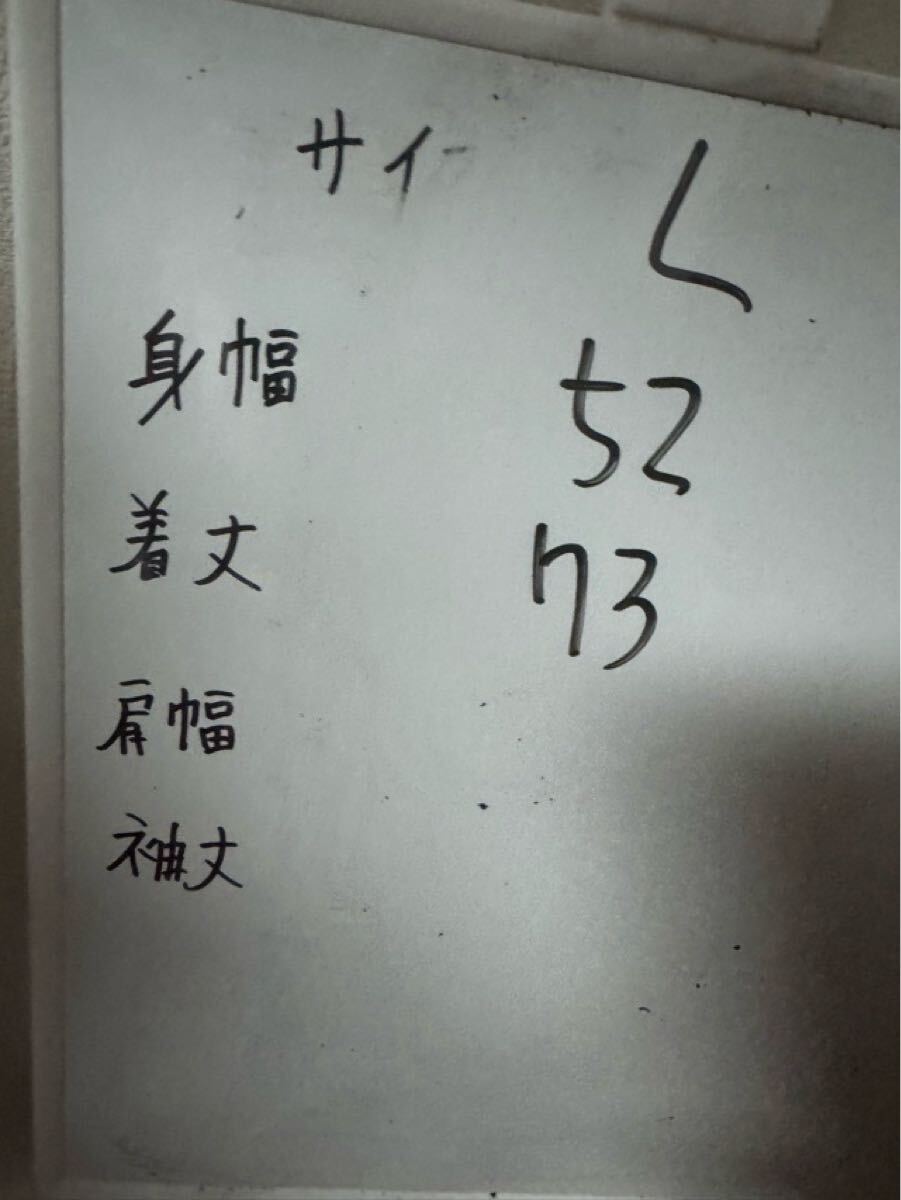 サイ L
身幅 52
着丈 73
肩幅
袖丈